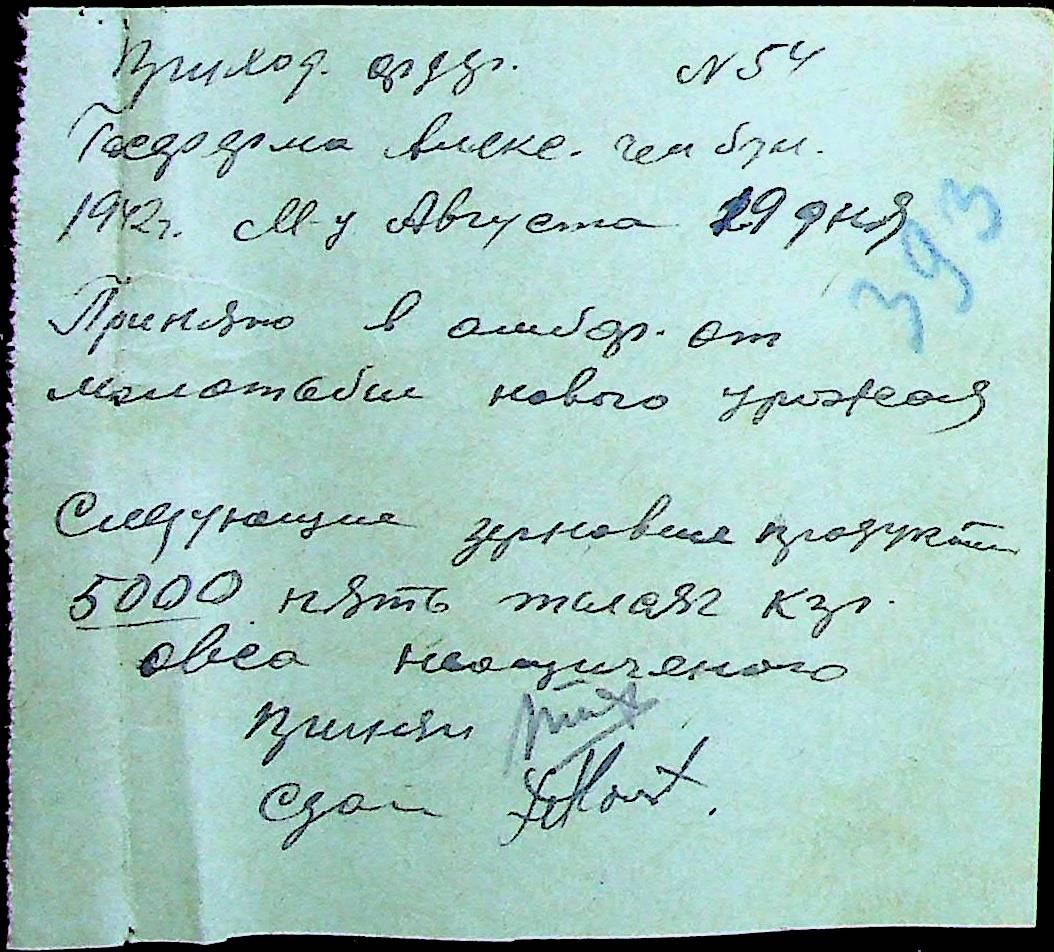 Приход. ордер. № 54
Госферма Алекс.
1942г. М-ц Августа 29 дня
393
Принято в амбар. от
молотьбы нового урожая
Следующие зерновые продукты
5000 пять тысяч кгр.
овса неощиченого
Принял
Сдал